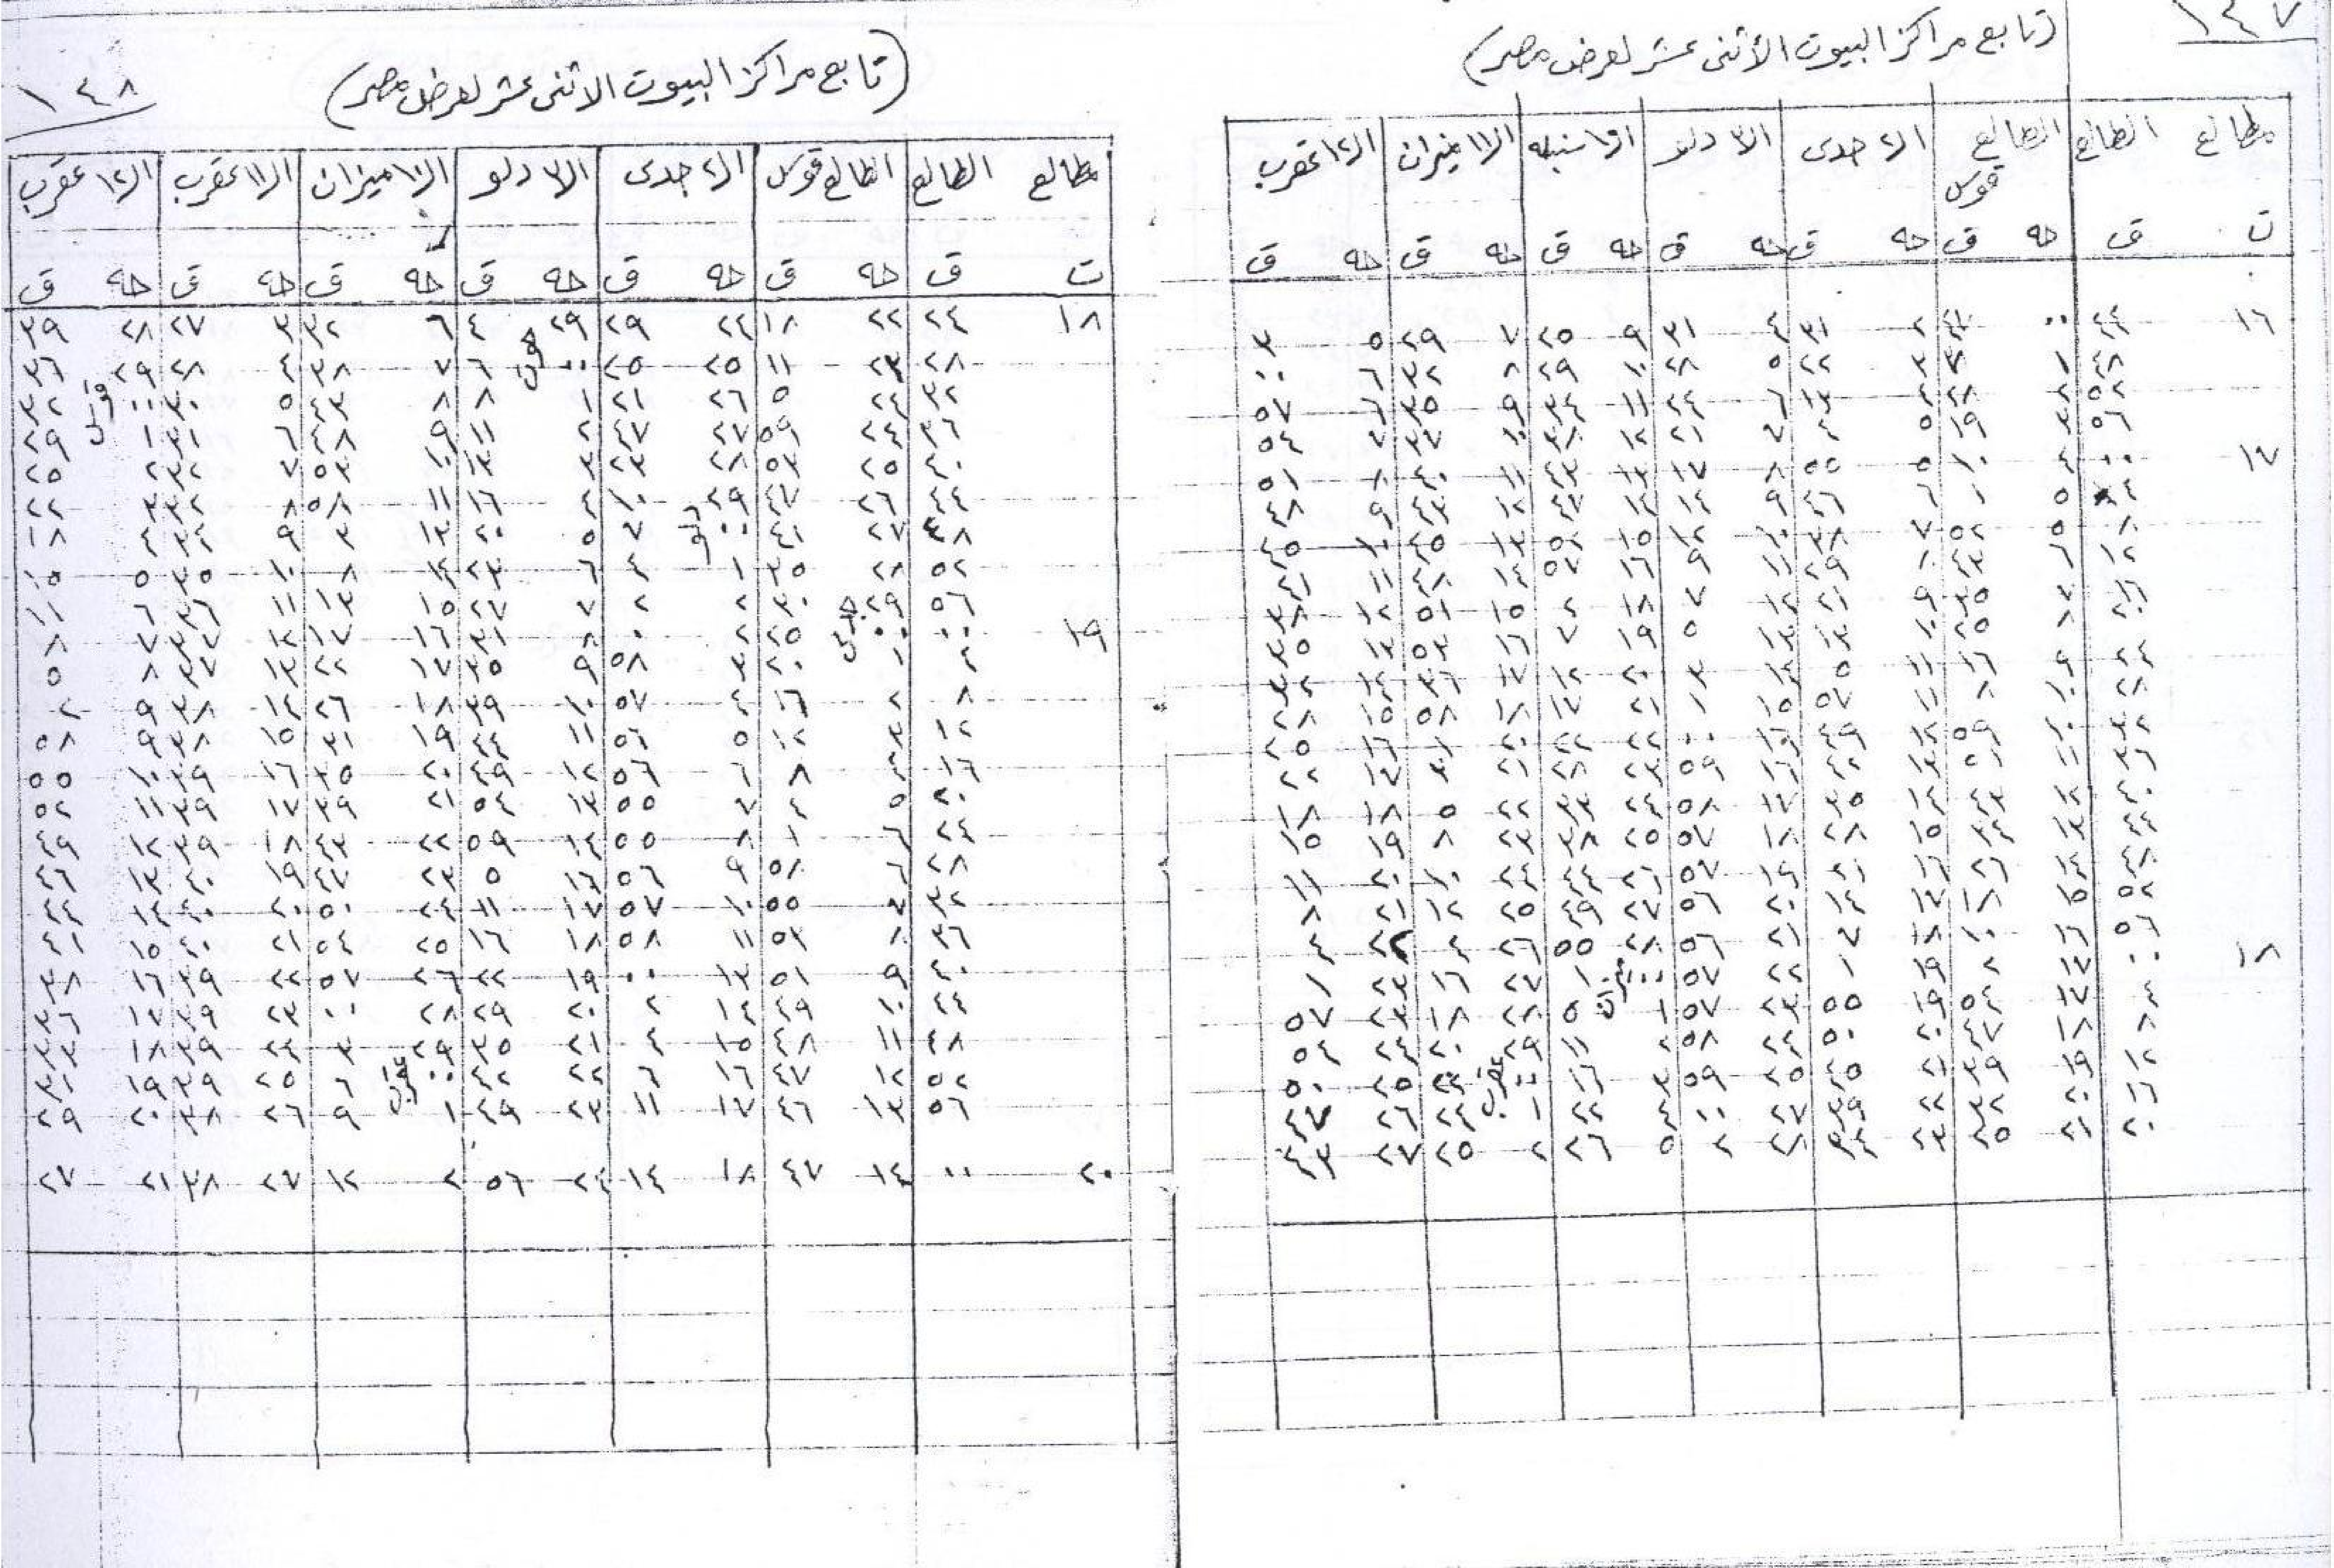 ١٤٧
(تابع مراكز البيوت الأثنى عشر لعرض مصر)
مطالع الطالع الطالع قوس ال٢ جدى ال٣ دلو ال١٠ سنبله ال١١ ميزان ال١٢ عقرب
ت ق حه ق حه ق حه ق حه ق حه ق حه ق
١٦ ٤٤ ٠٠ ٤٦ ٢ ٣١ ٤ ٣١ ٩ ٢٥ ٧ ٢٩ ٥ ٣
٤٨ ١ ٣٧ ٣ ٢٢ ٥ ٢٨ ١٠ ٢٩ ٨ ٣٢ ٦ ٠٠
٥٢ ٢ ٢٨ ٤ ١٣ ٦ ٢٤ ١١ ٣٤ ٩ ٣٥ ٦ ٥٧
٥٦ ٣ ١٩ ٥ ٤ ٧ ٢١ ١٢ ٣٨ ١٠ ٣٧ ٧ ٥٤
١٧ ٠٠ ٤ ١٠ ٥ ٥٥ ٨ ١٧ ١٣ ٤٣ ١١ ٤٠ ٨ ٥١
٤ ٥ ١ ٦ ٤٦ ٩ ١٤ ١٤ ٤٧ ١٢ ٤٣ ٩ ٤٨
٨ ٥ ٥٢ ٧ ٣٨ ١٠ ١٢ ١٥ ٥٢ ١٣ ٤٥ ١٠ ٤٥
١٢ ٦ ٤٣ ٨ ٢٩ ١١ ٩ ١٦ ٥٧ ١٤ ٤٨ ١١ ٤١
١٦ ٧ ٣٥ ٩ ٢١ ١٢ ٧ ١٨ ٢ ١٥ ٥١ ١٢ ٣٨
٢٠ ٨ ٢٥ ١٠ ١٣ ١٣ ٥ ١٩ ٧ ١٦ ٥٣ ١٣ ٣٥
٢٤ ٩ ١٦ ١١ ٥ ١٤ ٣ ٢٠ ١٢ ١٧ ٣٦ ١٤ ٣٢
٢٨ ١٠ ٨ ١١ ٥٧ ١٥ ١ ٢١ ١٧ ١٨ ٥٨ ١٥ ٢٨
٣٢ ١٠ ٥٩ ١٢ ٤٩ ١٦ ٠٠ ٢٢ ٢٢ ٢٠ ١ ١٦ ٢٥
٣٦ ١١ ٥١ ١٣ ٤٢ ١٦ ٥٩ ٢٣ ٢٨ ٢١ ٣ ١٧ ٢٢
٤٠ ١٢ ٤٣ ١٤ ٣٥ ١٧ ٥٨ ٢٤ ٣٣ ٢٢ ٥ ١٨ ١٨
٤٤ ١٣ ٣٤ ١٥ ٢٨ ١٨ ٥٧ ٢٥ ٣٨ ٢٣ ٨ ١٩ ١٥
٤٨ ١٤ ٢٦ ١٦ ٢١ ١٩ ٥٧ ٢٦ ٤٤ ٢٤ ١٠ ٢٠ ١١
٥٢ ١٥ ١٨ ١٧ ١٤ ٢٠ ٥٦ ٢٧ ٤٩ ٢٥ ١٢ ٢١ ٨
٥٦ ١٦ ١٠ ١٨ ٧ ٢١ ٥٦ ٢٨ ٥٥ ٢٦ ٤ ٢٢ ٤
١٨ ٠٠ ١٧ ٢ ١٩ ١ ٢٢ ٥٧ ميزان ٠٠ ١ ٢٧ ١٦ ٢٣ ١
٤ ١٧ ٥٤ ١٩ ٥٥ ٢٣ ٥٧ ١ ٥ ٢٨ ١٨ ٢٣ ٥٧
٨ ١٨ ٤٧ ٢٠ ٥٠ ٢٤ ٥٨ ٢ ١١ ٢٩ ٢٠ ٢٤ ٥٤
١٢ ١٩ ٣٩ ٢١ ٤٥ ٢٥ ٥٩ ٣ ١٦ عقرب ٠٠ ٢٢ ٢٥ ٥٠
١٦ ٢٠ ٣٢ ٢٢ ٣٩ ٢٧ ٠٠ ٤ ٢٢ ١ ٢٤ ٢٦ ٤٧
٢٠ ٢١ ٢٥ ٢٣ ٣٤ ٢٨ ٢ ٥ ٢٦ ٢ ٢٥ ٢٧ ٤٣
١٤٨
(تابع مراكز البيوت الاثنى عشر لعرض مصر)
مطالع الطالع الطالع قوس ال٢ جدى ال٣ دلو ال١٠ ميزان ال١١ عقرب ال١٢ عقرب
ت ق حه ق حه ق حه ق حه ق حه ق حه ق
١٨ ٢٤ ٢٢ ١٨ ٢٤ ٢٩ ٢٩ ٤ ٦ ٣٢ ٣ ٢٧ ٢٨ ٣٩
٢٨ ٢٣ ١١ ٢٥ ٢٥ حوت ٠٠ ٦ ٧ ٣٨ ٤ ٢٨ ٢٩ ٣٦
٣٢ ٢٤ ٥ ٢٦ ٢١ ١ ٨ ٨ ٤٣ ٥ ٣٠ قوس ٠٠ ٣٢
٣٦ ٢٤ ٥٩ ٢٧ ٤٧ ٢ ١١ ٩ ٤٨ ٦ ٣١ ١ ٢٩
٤٠ ٢٥ ٥٣ ٢٨ ٢٣ ٣ ١٣ ١٠ ٥٣ ٧ ٣٢ ٢ ٢٥
٤٤ ٢٦ ٤٧ ٢٩ ١٠ ٤ ١٦ ١١ ٥٨ ٨ ٣٣ ٣ ٢٢
٤٨ ٢٧ ٤١ دلو ٠٠ ٧ ٥ ٢٠ ١٣ ٣ ٩ ٣٤ ٤ ١٨
٥٢ ٢٨ ٣٥ ١ ٤ ٦ ٢٣ ١٤ ٨ ١٠ ٣٥ ٥ ١٥
٥٦ ٢٩ ٣٠ ٢ ٢ ٧ ٢٧ ١٥ ١٣ ١١ ٣٦ ٦ ١١
١٩ ٠٠ جدى ٠٠ ٢٥ ٢ ٠ ٨ ٣١ ١٦ ١٧ ١٢ ٣٧ ٧ ٨
٤ ١ ٢٠ ٣ ٥٨ ٩ ٣٥ ١٧ ٢٢ ١٣ ٣٧ ٨ ٥
٨ ٢ ١٦ ٤ ٥٧ ١٠ ٣٩ ١٨ ٢٦ ١٤ ٣٨ ٩ ٢
١٢ ٣ ١٢ ٥ ٥٦ ١١ ٤٤ ١٩ ٣١ ١٥ ٣٨ ٩ ٥٨
١٦ ٤ ٨ ٦ ٥٦ ١٢ ٤٩ ٢٠ ٣٥ ١٦ ٣٩ ١٠ ٥٥
٢٠ ٥ ٤ ٧ ٥٥ ١٣ ٥٤ ٢١ ٣٩ ١٧ ٣٩ ١١ ٥٢
٢٤ ٦ ١ ٨ ٥٥ ١٤ ٥٩ ٢٢ ٤٣ ١٨ ٣٩ ١٢ ٤٩
٢٨ ٦ ٥٨ ٩ ٥٦ ١٦ ٥ ٢٣ ٤٧ ١٩ ٤٠ ١٣ ٤٦
٣٢ ٧ ٥٥ ١٠ ٥٧ ١٧ ١١ ٢٤ ٥٠ ٢٠ ٤٠ ١٤ ٤٤
٣٦ ٨ ٥٣ ١١ ٥٨ ١٨ ١٦ ٢٥ ٥٤ ٢١ ٤٠ ١٥ ٤١
٤٠ ٩ ٥١ ١٣ ٠٠ ١٩ ٢٢ ٢٦ ٥٧ ٢٢ ٣٩ ١٦ ٣٨
٤٤ ١٠ ٤٩ ١٤ ٢ ٢٠ ٢٩ ٢٨ ٠٠ ٢٣ ٣٩ ١٧ ٣٦
٤٨ ١١ ٤٨ ١٥ ٤ ٢١ ٣٥ ٢٩ ٣ ٢٤ ٣٩ ١٨ ٣٣
٥٢ ١٢ ٤٧ ١٦ ٦ ٢٢ ٤٢ عقرب ٠٠ ٦ ٢٥ ٣٩ ١٩ ٣١
٥٦ ١٣ ٤٦ ١٧ ١١ ٢٣ ٤٩ ١ ٩ ٢٦ ٣٨ ٢٠ ٢٩
٢٠ ٠٠ ١٤ ٤٧ ١٨ ١٤ ٢٤ ٥٦ ٢ ١٢ ٢٧ ٣٨ ٢١ ٢٧